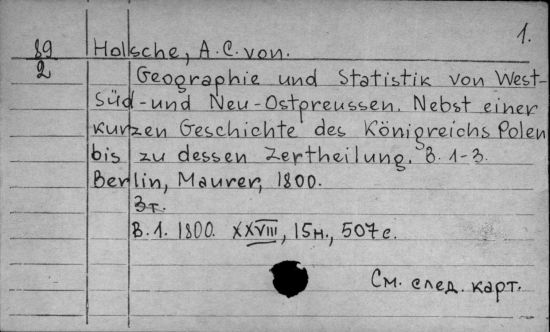 1.
89
2
Holsche, A.C. von.
Geographie und Statistik von West-
Süd-und Neu-Ostpreussen. Nebst einer
kurzen Geschichte des Königreichs Polen
bis zu dessen Zertheilung. B. 1-3.
Berlin, Maurer, 1800.
3т.
B.1. 1800. XXVIII, 15н., 507 с.
См. след. карт.